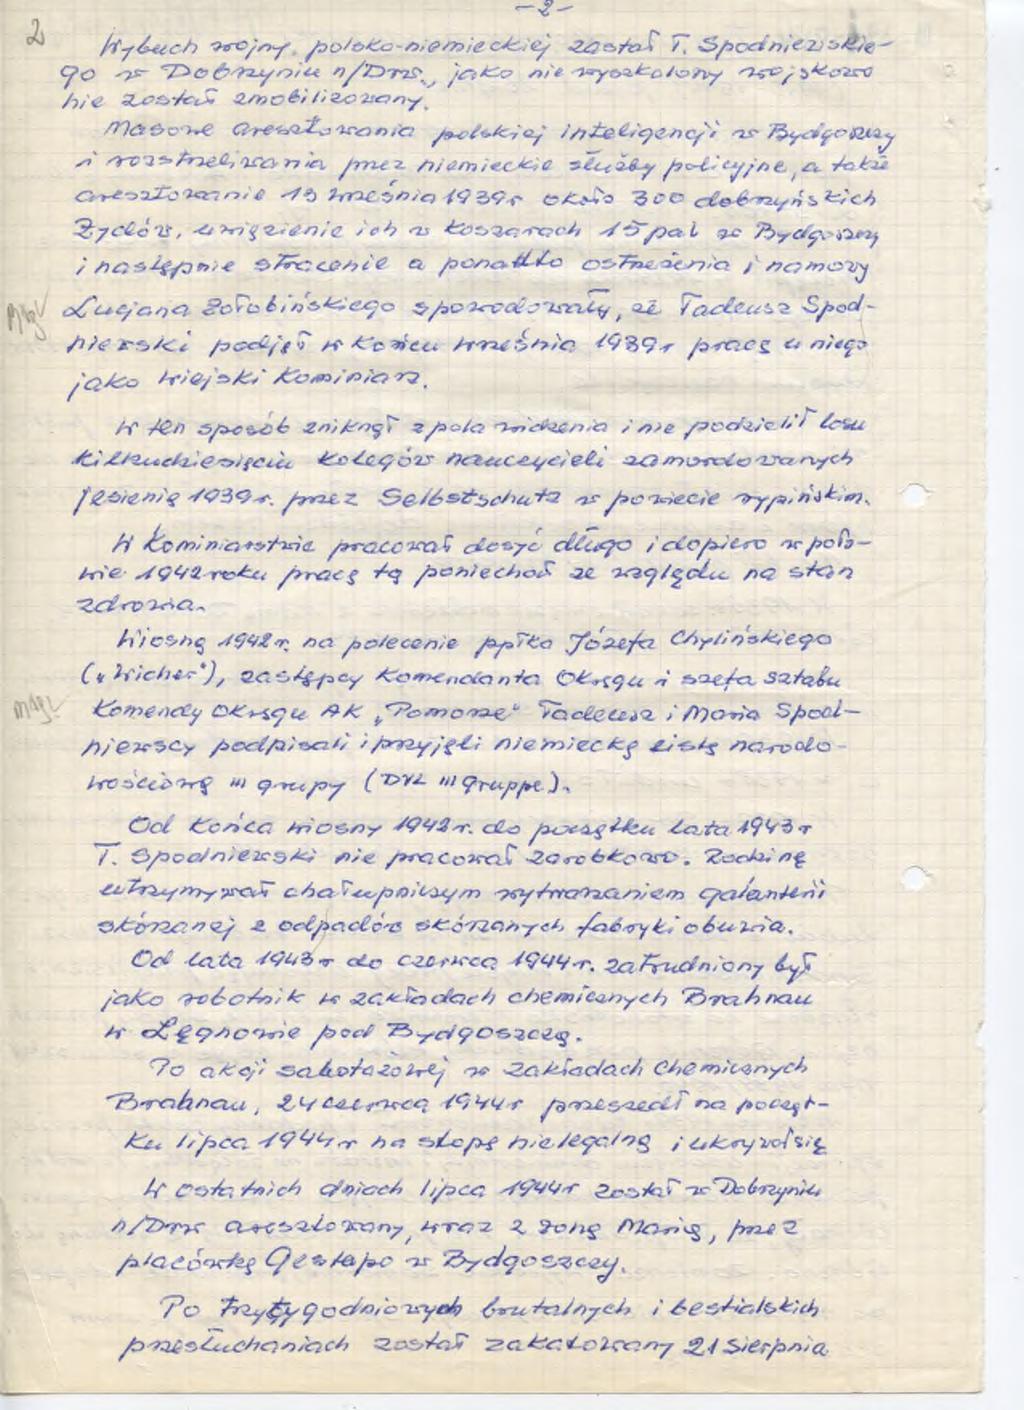 -2-
2
Wybuch wojny polsko-niemieckiej zastał T. Spodniewskie-
go w Dobrzyniu n/Drw., jako nie wyszkolony wojskowo
nie został zmobilizowany.
Masowe aresztowania polskiej inteligencji w Bydgoszczy
i rozstrzeliwania przez niemieckie służby policyjne, a także
aresztowanie 13 września 1939r około 300 dobrzyńskich
Żydów, uwięzienie ich w koszarach 15 pal w Bydgoszczy
i następnie stracenie a ponadto ostrzeżenia i namowy
Lucjana Żołobińskiego spowodowały, że Tadeusz Spod-
niewski podjął w końcu września 1939r pracę u niego
jako wiejski kominiarz.
W ten sposób zniknął z pola widzenia i nie podzielił losu
kilkudziesięciu kolegów nauczycieli zamordowanych
jesienią 1939r. przez Selbstschutz w powiecie rypińskim.
W kominiarstwie pracował dosyć długo i dopiero w poło-
wie 1942 roku pracę tą poniechał ze względu na stan
zdrowia.
Wiosną 1942r. na polecenie ppłka Józefa Chylińskiego
(„Wicher"), zastępcy Komendanta Okręgu i szefa sztabu
Komendy Okręgu AK „Pomorze" Tadeusz i Maria Spod-
niewscy podpisali i przyjęli niemiecką listę narodo-
wościową III grupy (DVL III gruppe).
Od końca wiosny 1942r. do początku lata 1943r
T. Spodniewski nie pracował zarobkowo. Rodzinę
utrzymywał chałupniczym wytwarzaniem galanterii
skórzanej z odpadów skórzanych fabryki obuwia.
Od lata 1943r do czerwca 1944r. zatrudniony był
jako robotnik w zakładach chemicznych Brahnau
w Łęgnowie pod Bydgoszczą.
Po akcji sabotażowej w zakładach chemicznych
Brahnau, 24 czerwca 1944r przeszedł na począt-
ku lipca 1944r na stopę nielegalną i ukrywał się
W ostatnich dniach lipca 1944r został w Dobrzyniu
n/Drw aresztowany, wraz z żoną Marią, przez
placówkę Gestapo w Bydgoszczy.
Po trzytygodniowych brutalnych i bestialskich
przesłuchaniach został zakatowany 21 sierpnia